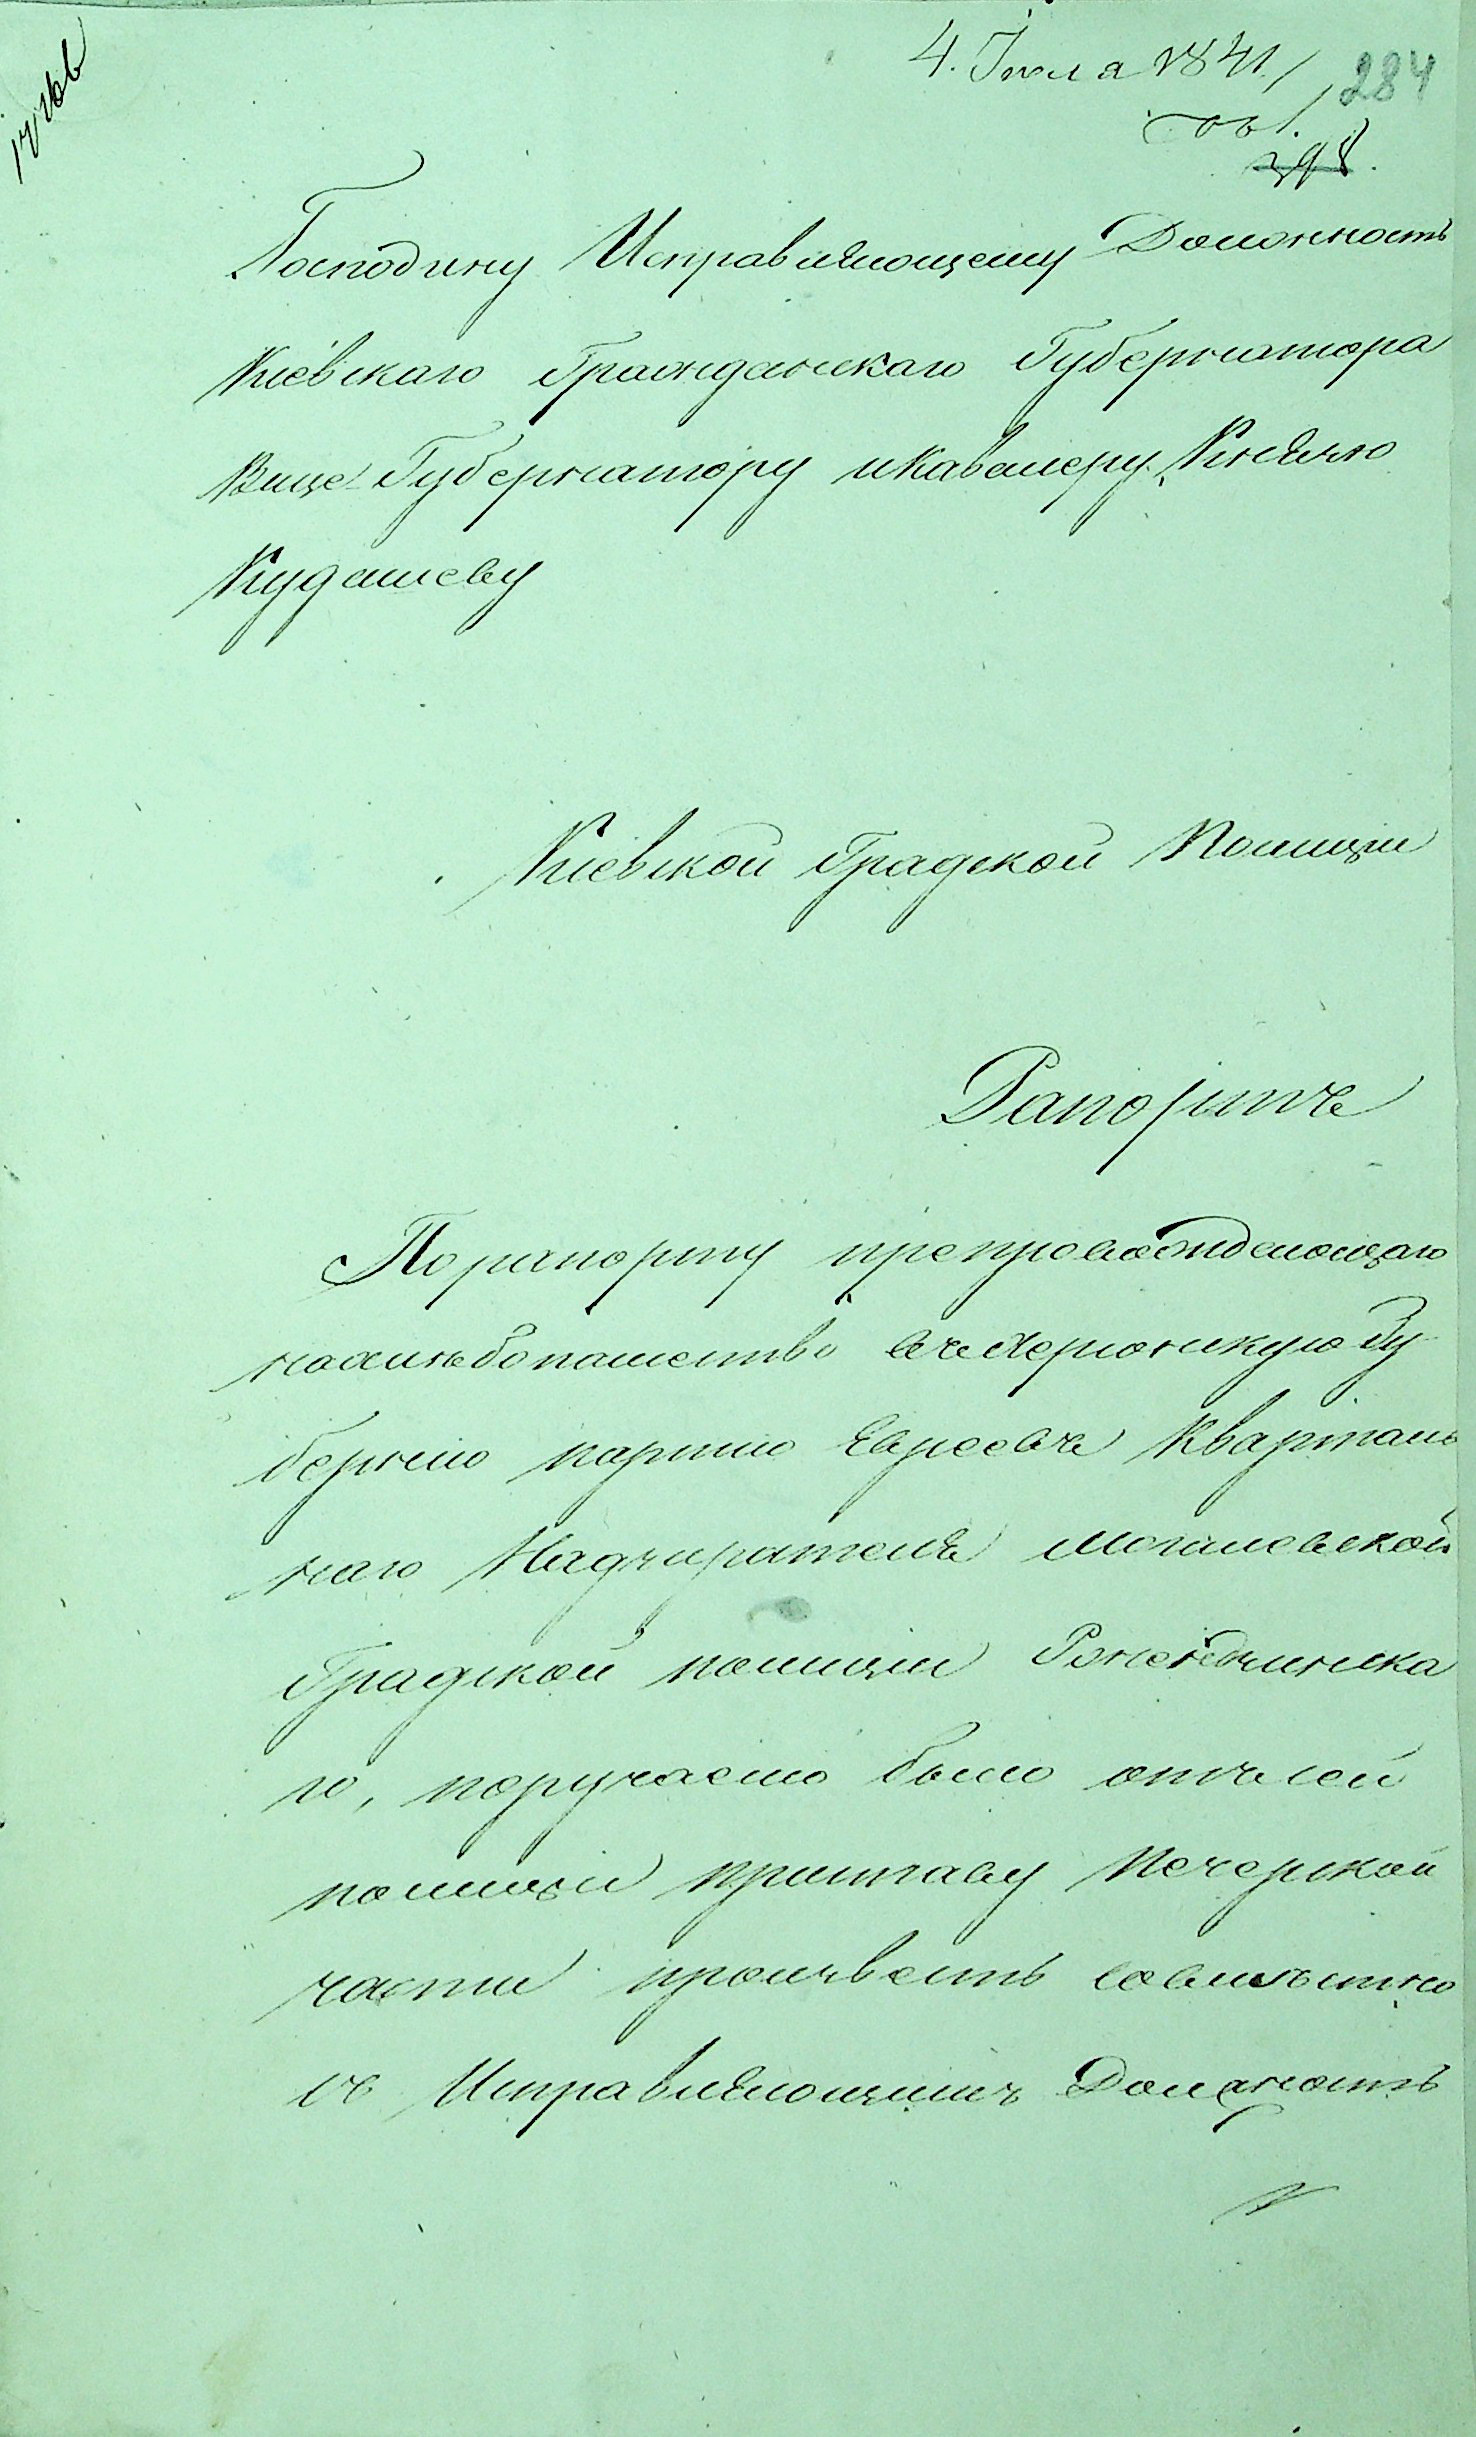 4. Іюля 1841.
284
398.
Господину Исправляющему Должность
Кіевскаго Гражданскаго Губернатора
Вице-Губернатору и Кавалеру Князю
Кудашеву
Кіевской Градской Полиціи
Рапортъ
По рапорту препровождающаго
на хлѣбопашество въ Херсонскую Гу
бернію партію Евреевъ Квартал
наго Надзирателя Могилевской
Градской полиціи
го, поручаемо было отъ сей
полиціи приставу Печерской
части произвесть совмѣстно
съ Исправляющимъ Должность